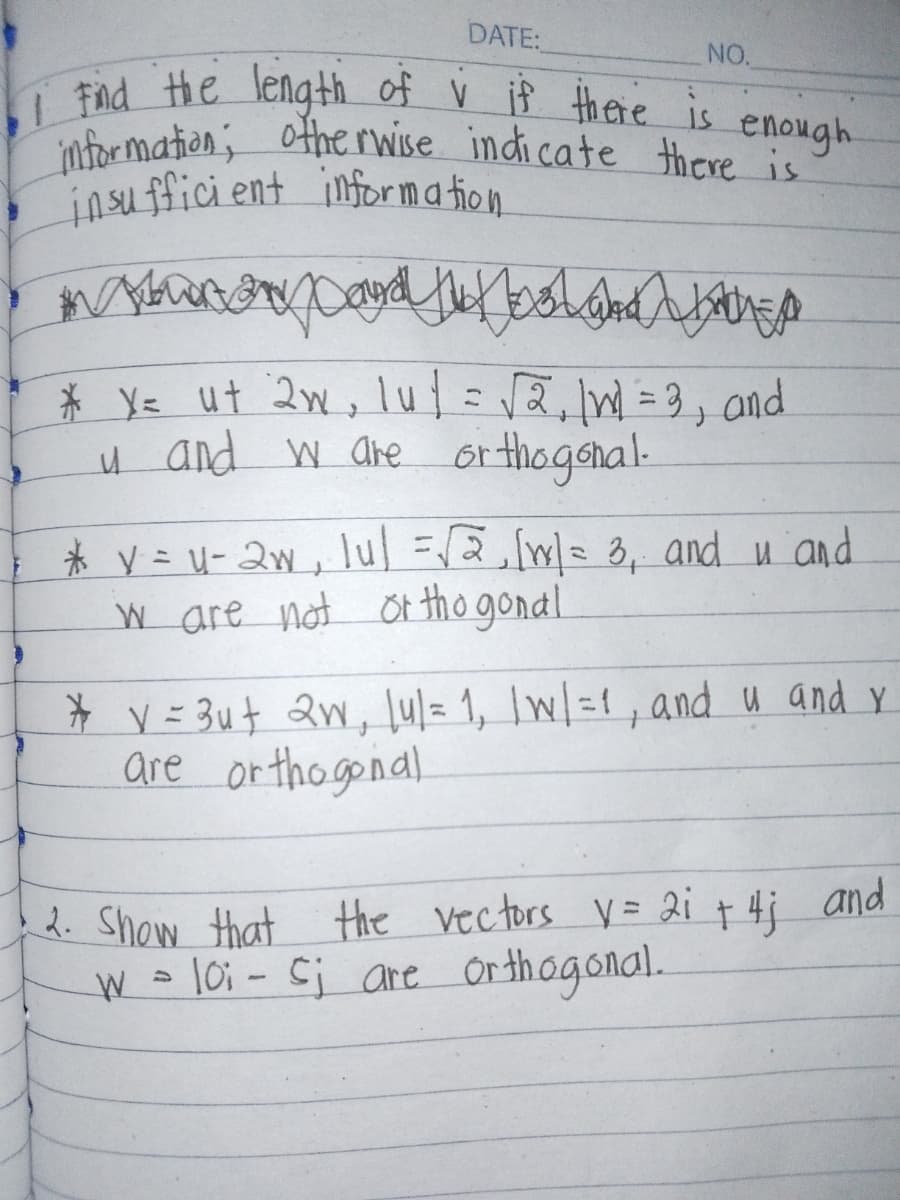 DATE: NO.
1 Find the length of v if there is enough
information; otherwise indicate there is
insufficient information
* v= u+ 2w, |u| = √2, |w| = 3, and
u and w are orthogonal.
* v = u- 2w, |u| = √2, |w| = 3, and u and
w are not orthogonal
* v = 3u+ 2w, |u| = 1, |w|=1, and u and v
are orthogonal
2. Show that the vectors v= 2i + 4j and
w = 10i - 5j are orthogonal.